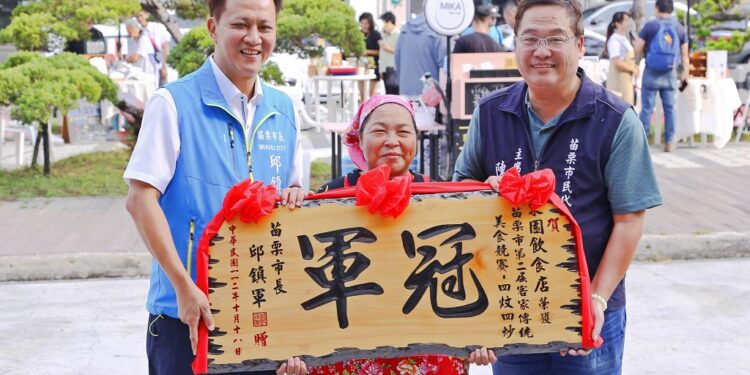 MIKA
苗栗市長
MIAOLI CITY
邱鎮
苗栗市民代
主席
陳
賀
園飲食店 榮獲
苗栗市第二屆客家傳統
美食競賽-四炆四炒
冠軍
苗栗市長
邱鎮軍 贈
中華民國一一二年十月十八日